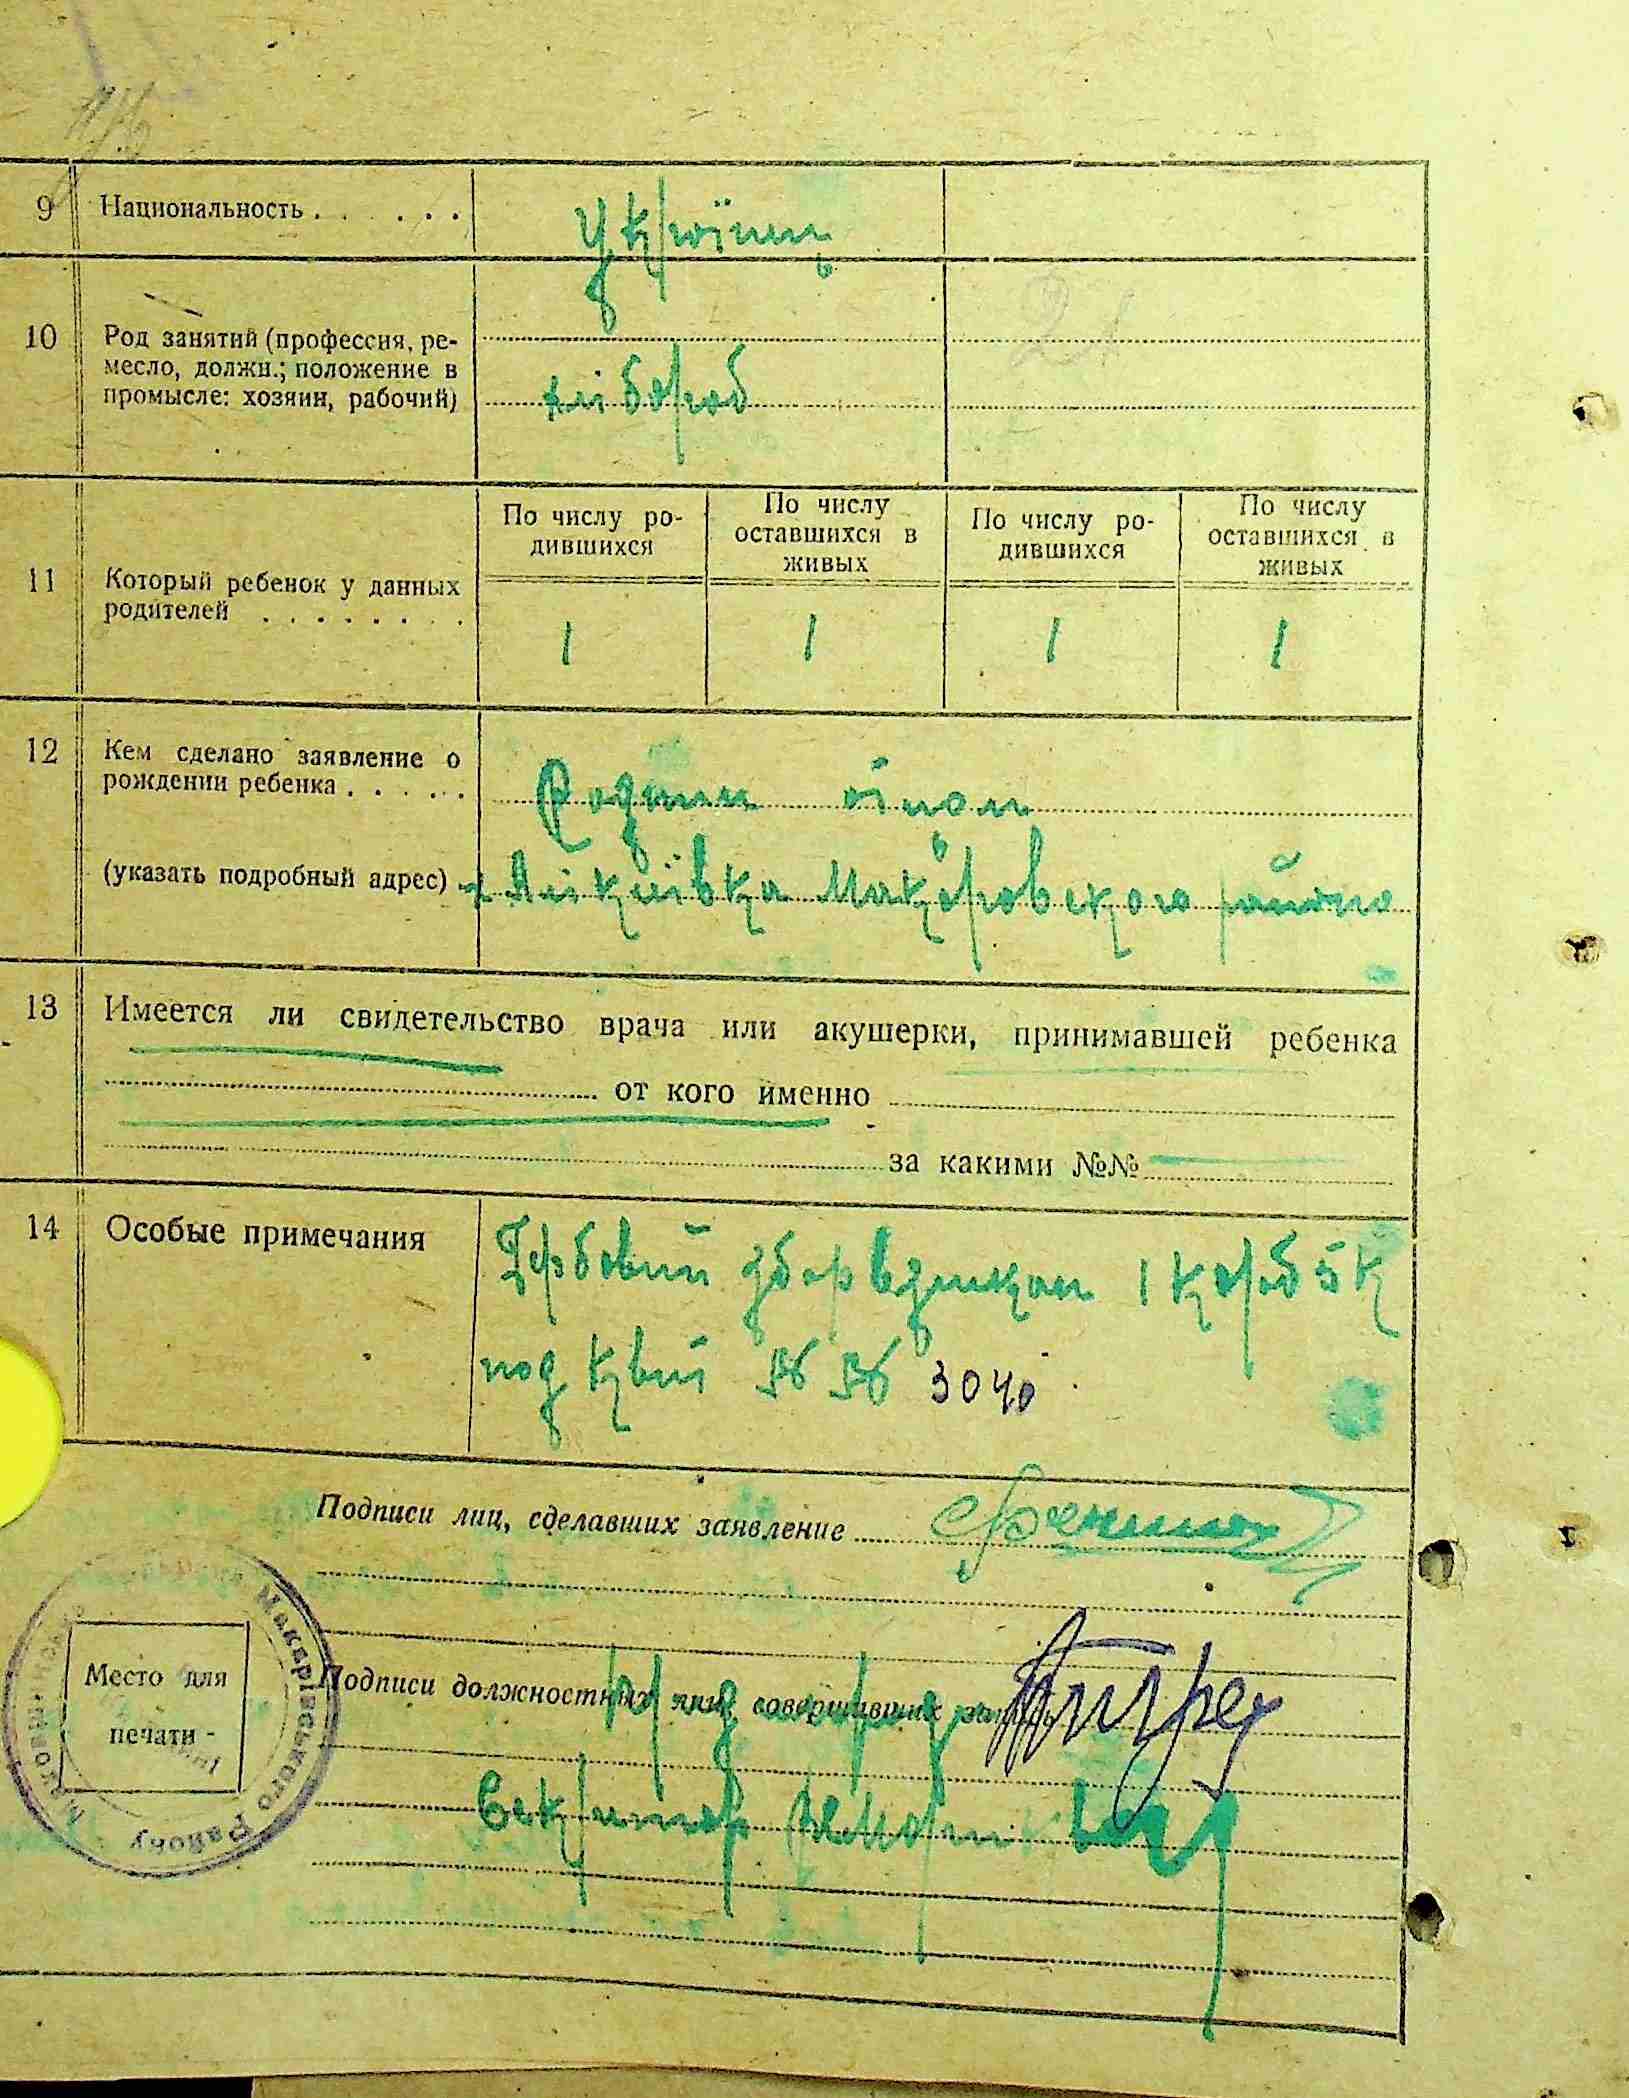 9 Национальность . . . . . .
Україн.
10 Род занятий (профессия, ре-
месло, должн.; положение в
промысле: хозяин, рабочий)
хлібороб
21
11 Который ребенок у данных
родителей . . . . . . . .
По числу ро-
дившихся
По числу
оставшихся в
живых
По числу ро-
дившихся
По числу
оставшихся в
живых
1 1 1 1
12 Кем сделано заявление о
рождении ребенка . . . . .
(указать подробный адрес)
Макаровского району
13 Имеется ли свидетельство врача или акушерки, принимавшей ребенка
от кого именно
за какими №№
14 Особые примечания
Гербовий збор 1 карб 5 к
под квит № № 3040
Подписи лиц, сделавших заявление
Подписи должностных лиц, совершивших запись
Секретар
Место для
печати
Макарівського Району